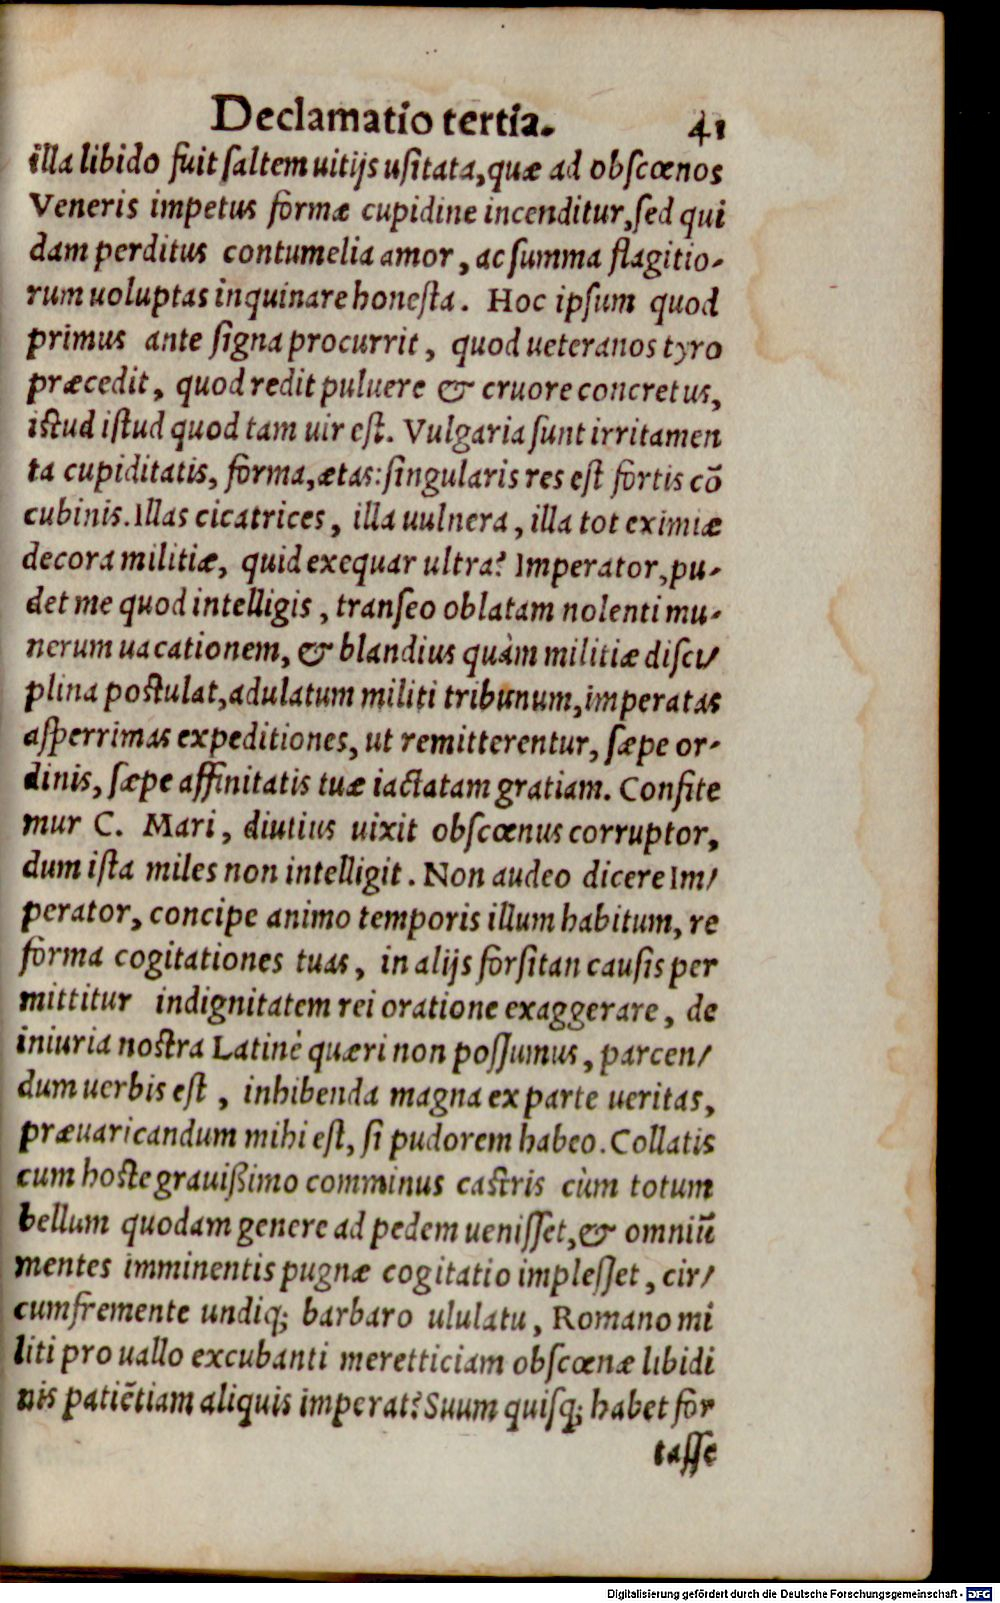 Declamatio tertia. 41
illa libido fuit saltem uitijs usitata, quæ ad obscœnos
Veneris impetus formæ cupidine incenditur, sed qui
dam perditus contumelia amor, ac summa flagitio-
rum uoluptas inquinare honesta. Hoc ipsum quod
primus ante signa procurrit, quod ueteranos tyro
præcedit, quod redit puluere & cruore concretus,
istud istud quod tam uir est. Vulgaria sunt irritamen
ta cupiditatis, forma, ætas: singularis res est fortis cõ
cubinis. Illas cicatrices, illa uulnera, illa tot eximiæ
decora militiæ, quid exequar ultra? Imperator, pu-
det me quod intelligis, transeo oblatam nolenti mu-
nerum uacationem, & blandius quàm militiæ disci/
plina postulat, adulatum militi tribunum, imperatas
asperrimas expeditiones, ut remitterentur, sæpe or-
dinis, sæpe affinitatis tuæ iactatam gratiam. Confite
mur C. Mari, diutius uixit obscœnus corruptor,
dum ista miles non intelligit. Non audeo dicere Im/
perator, concipe animo temporis illum habitum, re
forma cogitationes tuas, in alijs forsitan causis per
mittitur indignitatem rei oratione exaggerare, de
iniuria nostra Latinè quæri non possumus, parcen/
dum uerbis est, inhibenda magna ex parte ueritas,
præuaricandum mihi est, si pudorem habeo. Collatis
cum hoste grauißimo comminus castris cùm totum
bellum quodam genere ad pedem uenisset, & omniũ
mentes imminentis pugnæ cogitatio implesset, cir/
cumfremente undiq; barbaro ululatu, Romano mi
liti pro uallo excubanti meretticiam obscœnæ libidi
nis patiẽtiam aliquis imperat? Suum quisq; habet for
tasse
Digitalisierung gefördert durch die Deutsche Forschungsgemeinschaft - DFG